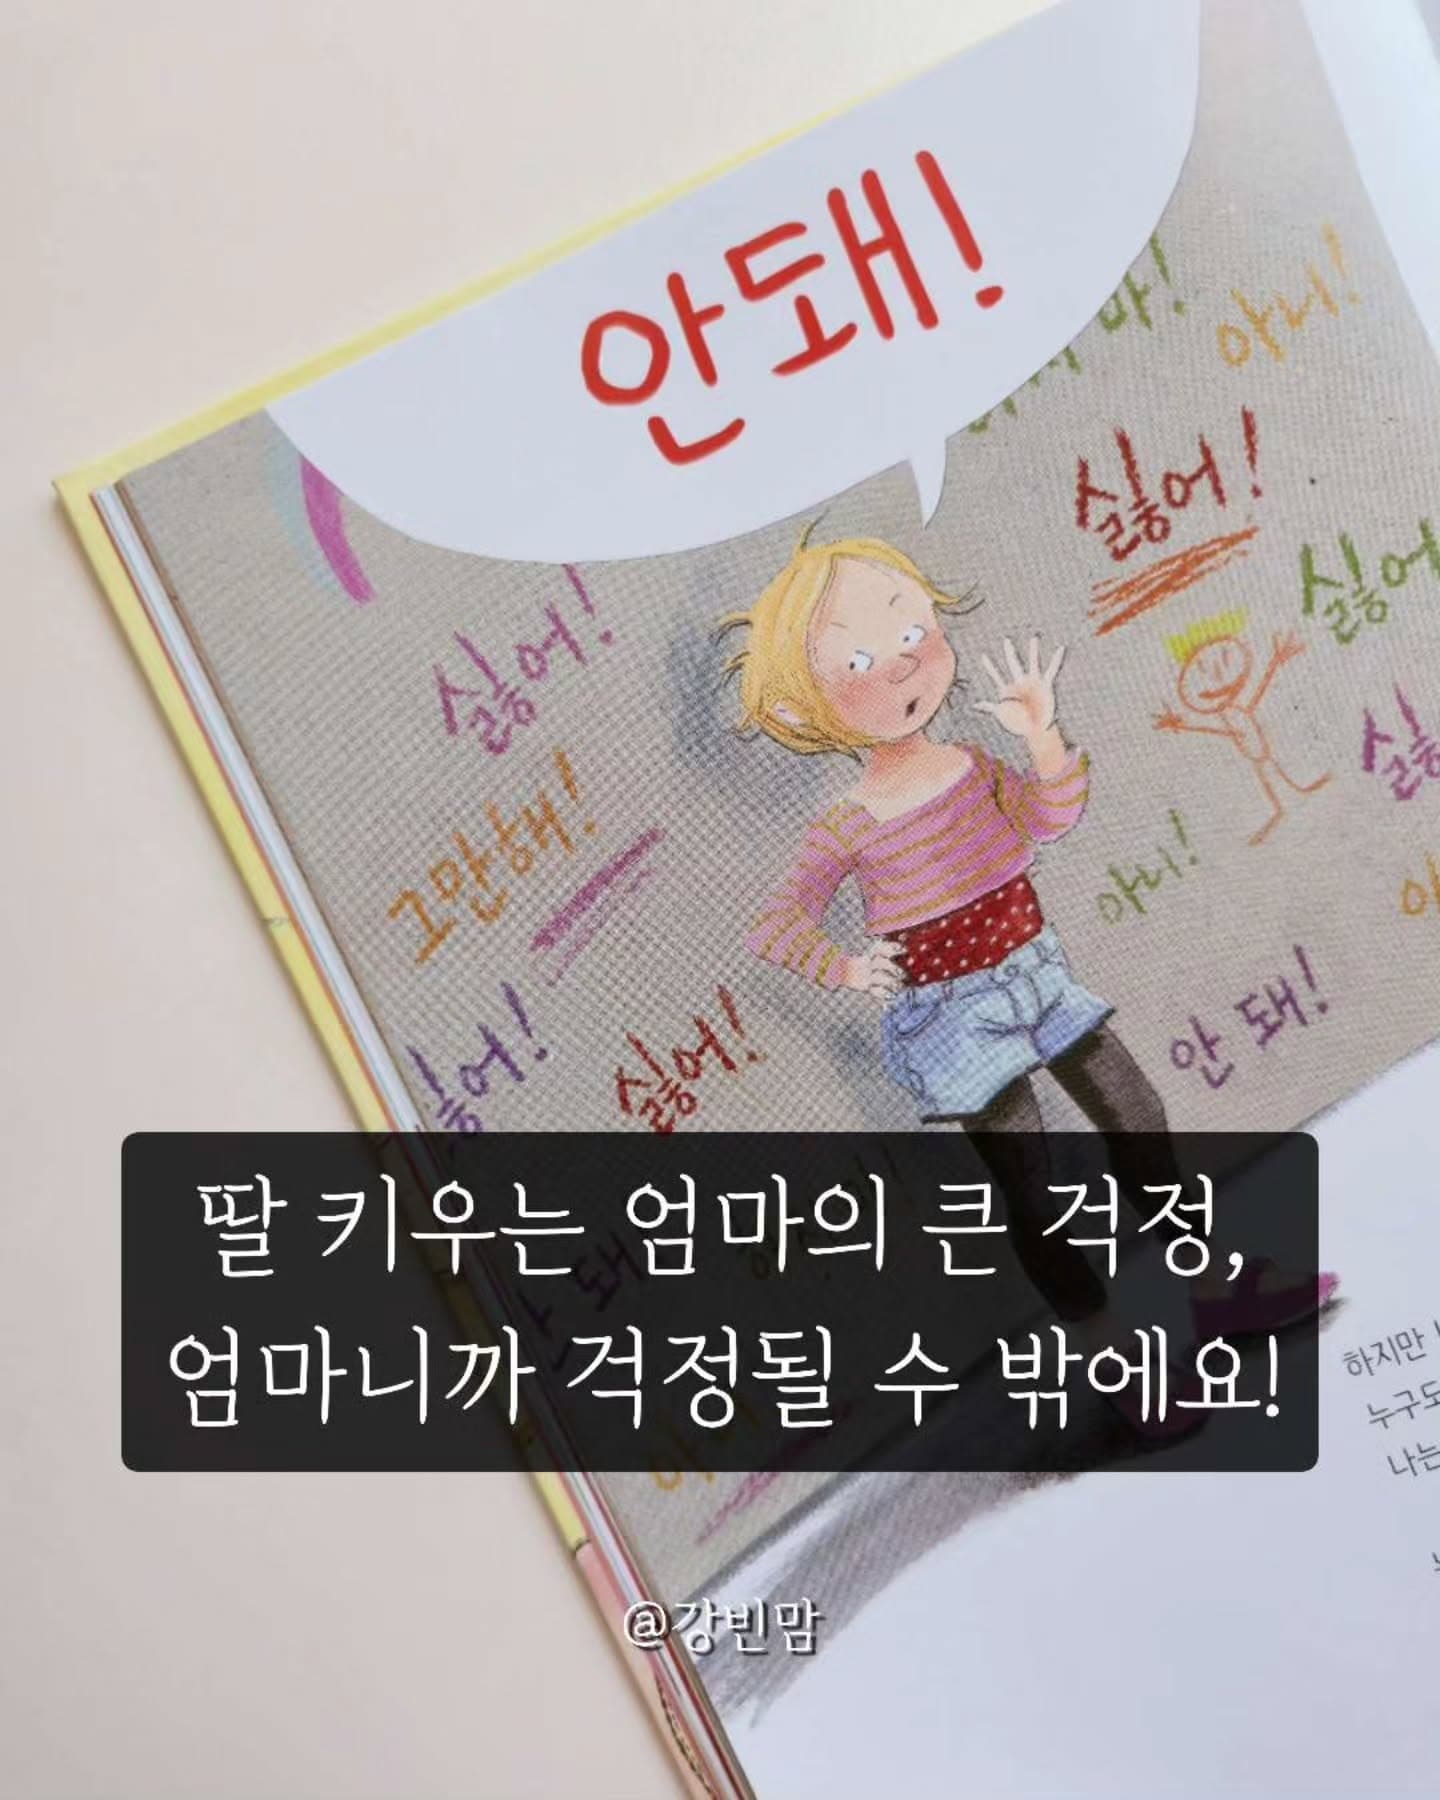 안돼!
아니!
싫어!
싫어
싫어!
그만해!
아니!
싫어!
안 돼!
딸 키우는 엄마의 큰 걱정,
엄마니까 걱정될 수 밖에요!
하지만
누구도
나는
@강빈맘